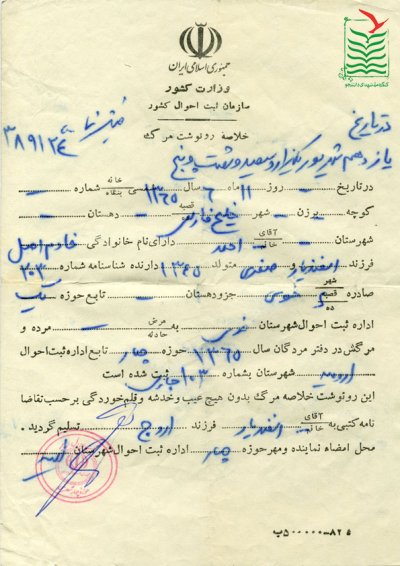 جمهوری اسلامی ایران
وزارت کشور
سازمان ثبت احوال کشور
خلاصه رونوشت مرگ
در تاریخ
یازدهم شهریور یکهزار و سیصد و شصت و پنج
در تاریخ ۱۱ روز ۶ ماه سال ۱۳۶۵ شمسی خانه بنگاه شماره
کوچه برزن شهر قصبه خلیج فارس دهستان
شهرستان آقای خانم احمد دارای نام خانوادگی خادم اصل
فرزند اسفندیار و صغری متولد ۱۳۴۵ دارنده شناسنامه شماره ۱۰۳
صادره شهر قصبه ده خوی جزو دهستان تابع حوزه یک
اداره ثبت احوال شهرستان خوی به مرض حادثه مرده و
مرگش در دفتر مردگان سال ۱۳۶۵ حوزه چهار تابع اداره ثبت احوال
ارومیه شهرستان بشماره ۱۰۳ جاری ثبت شده است
این رونوشت خلاصه مرگ بدون هیچ عیب و خدشه و قلم خوردگی بر حسب تقاضا
نامه کتبی به آقای خانم اسفندیار فرزند تسلیم گردید.
محل امضاء نماینده و مهر حوزه چهار اداره ثبت احوال شهرستان